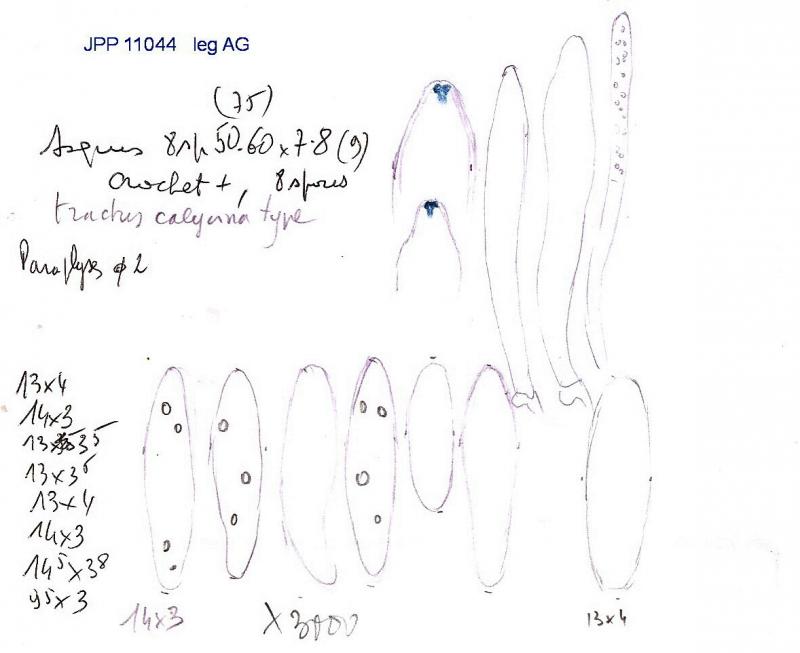 JPP 11044 leg AG
(75)
Asques 8sp. 50-60 x 7-8 (9)
Crochet +, 8 spores
tractus calycina type
Paraphyses ø 2
13x4
14x3
13x 3⁵
13x3⁵
13x4
14x3
14⁵x3⁸
9⁵x3
14x3
X 3000
13x4